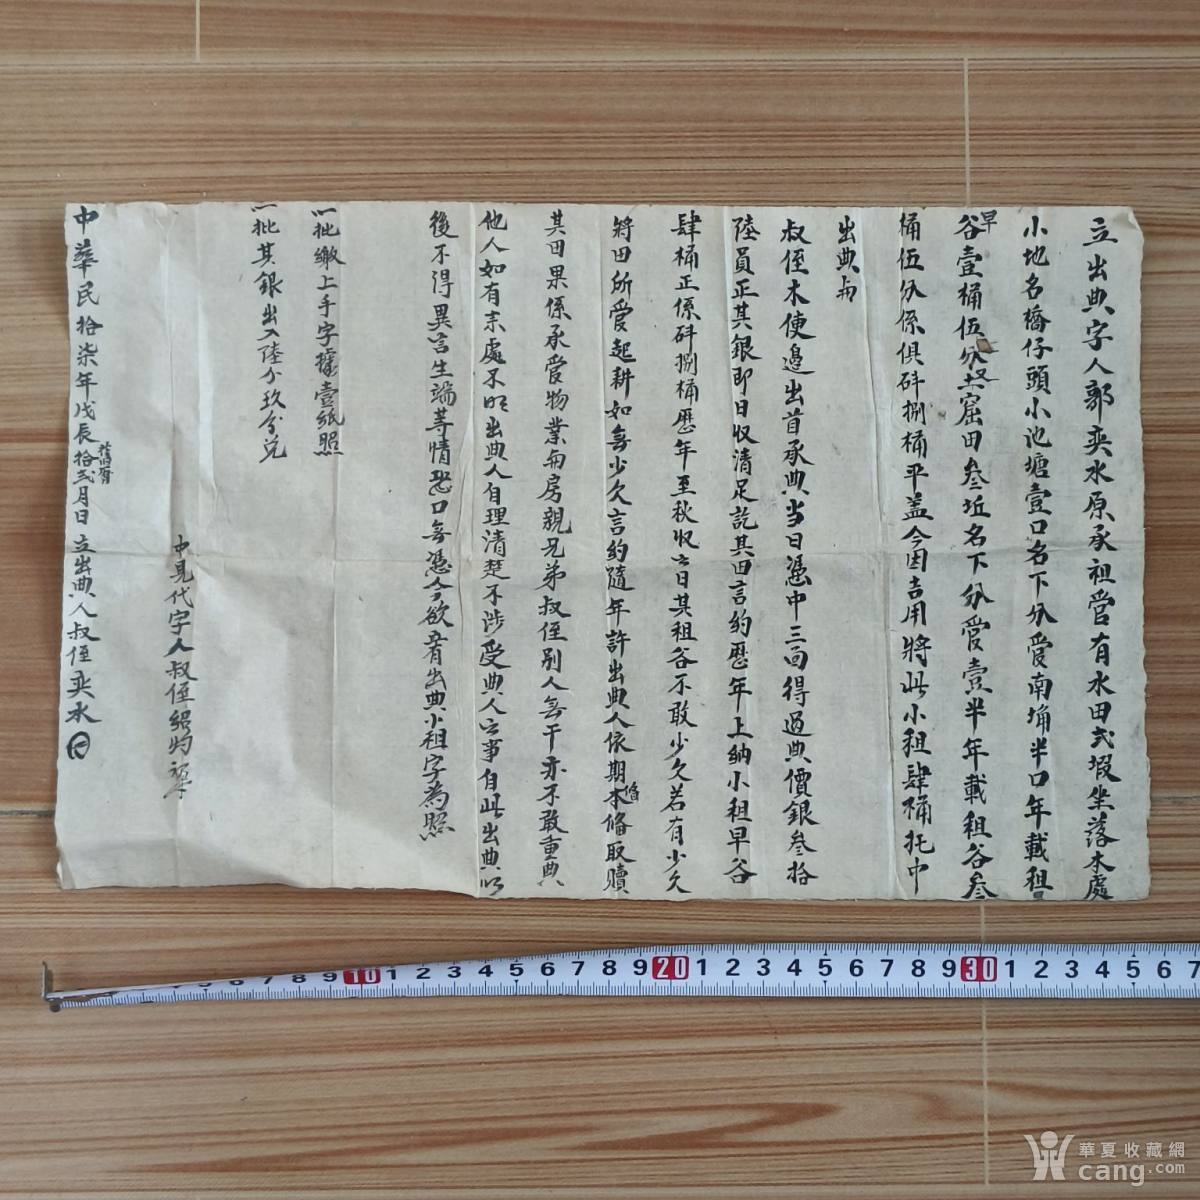 立出典字人郭奕水原承祖管有水田弍塅坐落本處
小地名橋仔頭小池塘壹口名下分受南埆半口年載租
早谷壹桶伍分又土窟田叁坵名下分受壹半年載租谷叁
桶伍分係俱斗捌桶平盖今因吉用將此小租肆桶托中
出典與
叔侄木使邊出首承典当日憑中三面得過典價銀叁拾
陸員正其銀即日收清足訖其田言約歷年上納小租早谷
肆桶正係斗捌桶歷年至秋收之日其租谷不敢少欠若有少欠
將田所管起耕如無少欠言約隨年許出典人依期備本取贖
其田果係承受物業與房親兄弟叔侄別人無干亦不敢重典
他人如有来處不明出典人自理清楚不涉受典人之事自此出典以
後不得異言生端等情恐口無憑今欲有出典小租字為照
一批繳上手字據壹紙照
一批其銀出入陸分玖分兌
中見代字人叔侄
中華民拾柒年戊辰舊曆拾弍月日立出典人叔侄奕水
10 1 2 3 4 5 6 7 8 9 20 1 2 3 4 5 6 7 8 9 30 1 2 3 4 5 6 7
華夏收藏網
cang.com